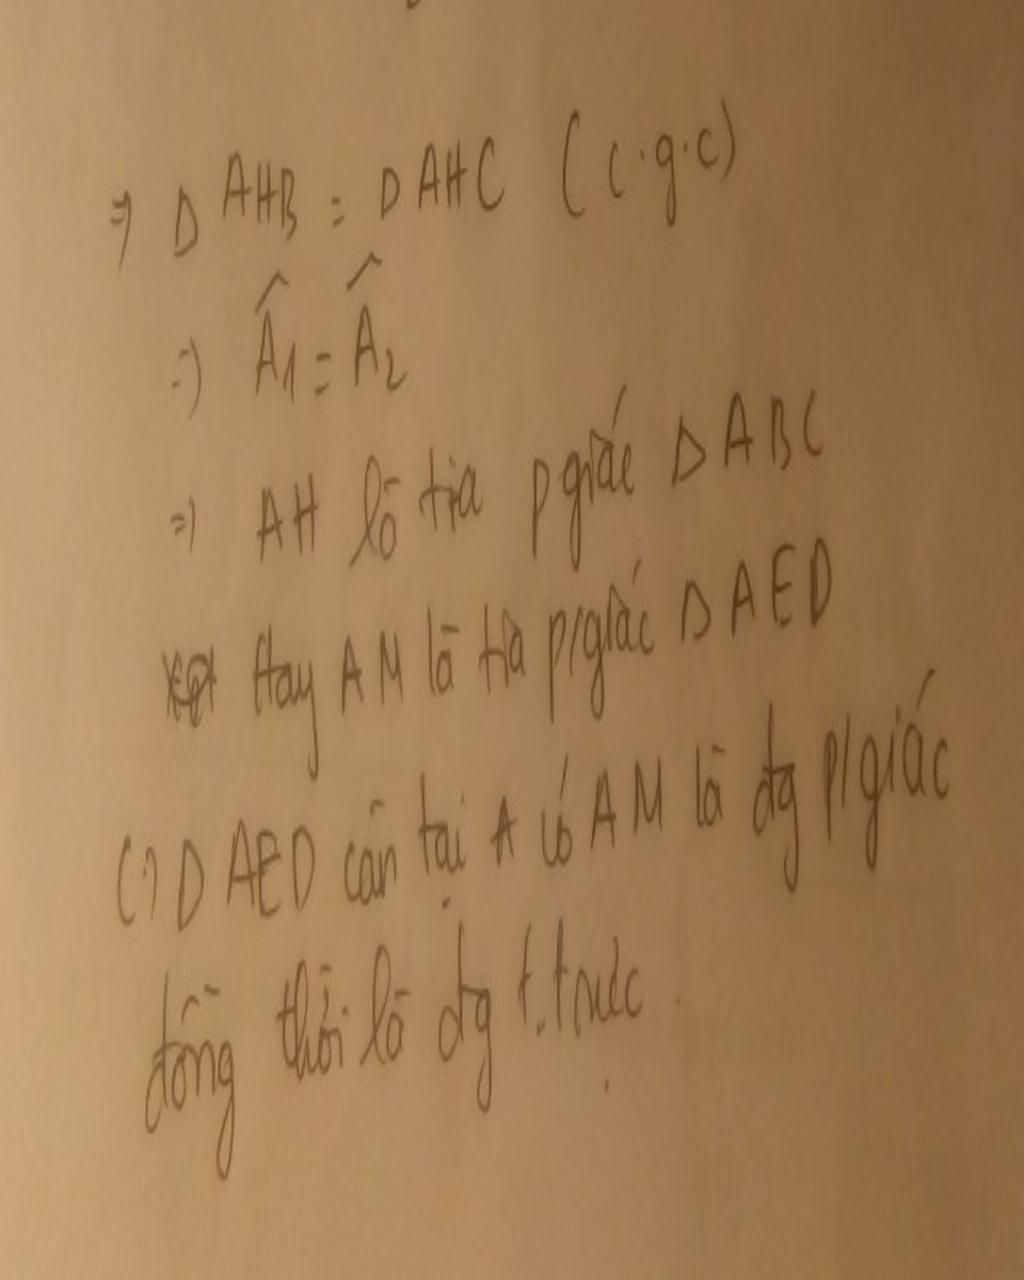 => Δ AHB = Δ AHC (c.g.c)
=> Â1 = Â2
=> AH là tia pgiác Δ ABC
Hay AM là tia p/giác Δ AED
(?) Δ AED cân tại A có AM là đg p/giác
đồng thời là đg t.trực.